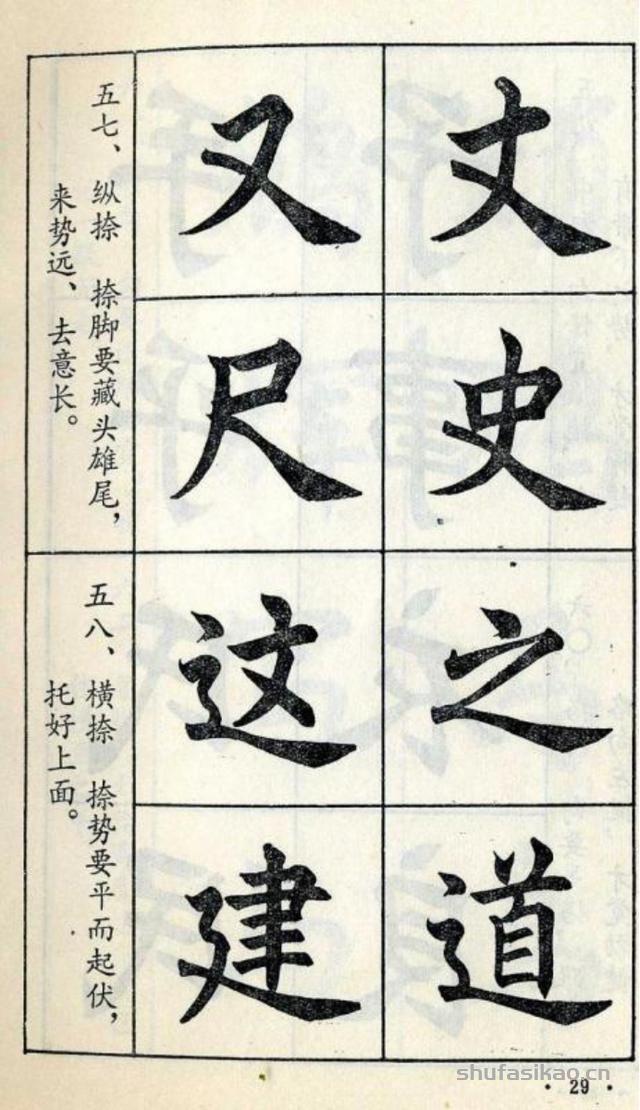 丈史之道
又尺这建
五七、纵捺 捺脚要藏头雄尾，
来势远、去意长。
五八、横捺 捺势要平而起伏，
托好上面。
shufasikao.cn
·29·